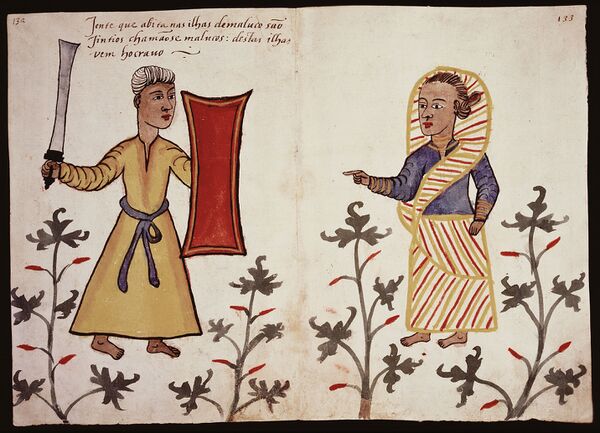 132
Jente que abita nas ilhas de maluco são
Jintios chamãose malucos: destas ilhas
vem ho cravo
133